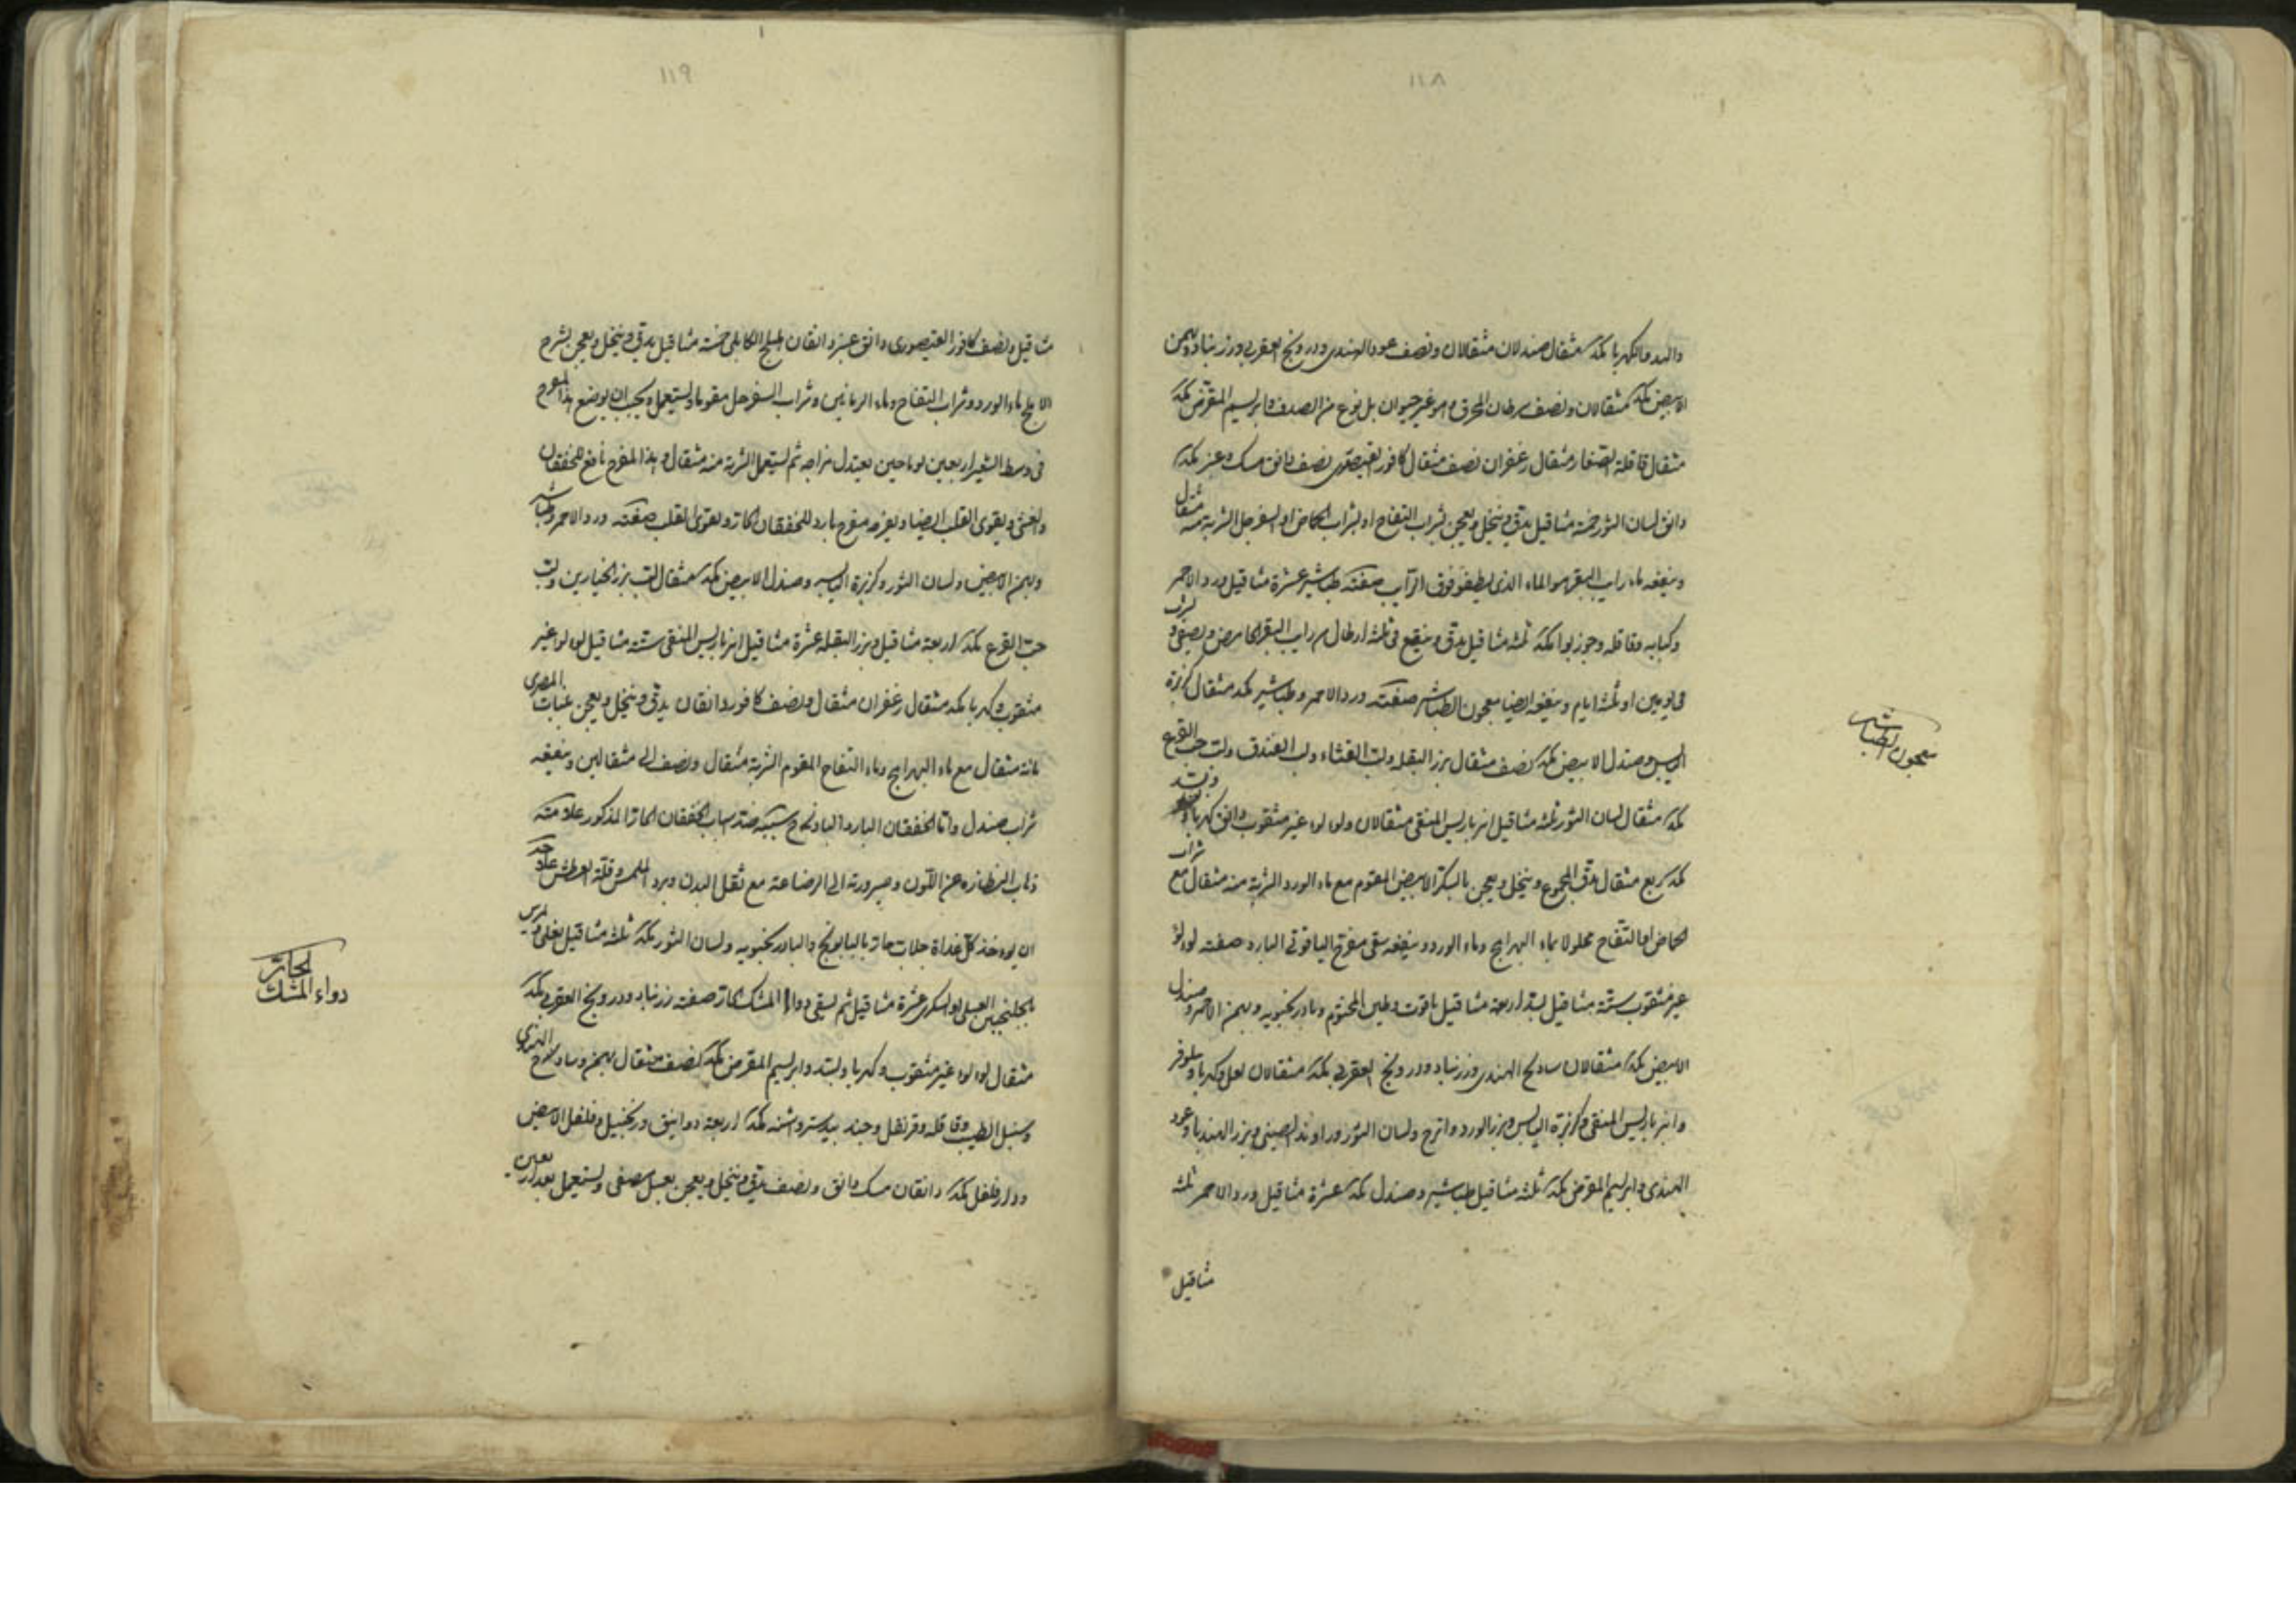 ١١٨
والبسد والكهربا مكد مثقال صندلان مثقالان ونصف عود الهندى ودرونج العقربى وزرنباد وبهمن
الابيض مكد مثقالان ونصف سرطان المحرق وهو غير حيوان بل نوع من الصدف وابريسم المقرض مكد
مثقال قاقلة الصغار مثقال زعفران نصف مثقال كافور القيصورى نصف دانق مسك وعنبر مكد
دانق لسان الثور خمسة مثاقيل يدق وينخل ويعجن بشراب التفاح او بشراب الحماض او السفرجل الشربة منه مثقال
وينفعه ماء رايب البقر هو الماء الذى يطفو فوق الرايب صفته طباشير عشرة مثاقيل ورد الاحمر
وكبابه وقاقله وجوز بوا مكد ثلثه مثاقيل يدق وينقع فى ثلثه ارطال من رايب البقر الحامض ويصفى ويشرب
فى يومين او ثلثة ايام وينفعه ايضا معجون الطباشير صفته ورد الاحمر وطباشير مكد مثقال كزبرة
اليابس وصندل الابيض مكد نصف مثقال بزر البقله ولب القثاء ولب الفندق ولب حب القرع
مكد مثقال لسان الثور ثلثه مثاقيل انبرباريس المنقى مثقالان ولولو غير مثقوب دانق كهربا وبسد
مكد ربع مثقال يدق المجموع وينخل ويعجن بالسكر الابيض المقوم مع ماء الورد الشربة منه مثقال مع شراب
الحماض او التفاح محلولا بماء البهرامج وماء الورد وينفعه سقى مفرح الياقوتى البارد صفته لولو
غير مثقوب ستة مثاقيل بسد اربعة مثاقيل ياقوت وطين المختوم وبادرنجبويه وبهمن الاحمر وصندل
الابيض مكد مثقالان سادج الهندى وزرنباد ودرونج العقربى مكد مثقالان لعل وكهربا ونيلوفر
وانبرباريس المنقى وكزبرة اليابس وبزر الورد واترج ولسان الثور وراوند الصينى وبزر الهندبا وعود
الهندى وابريسم المقرض مكد ثلثه مثاقيل طباشير وصندل مكد عشرة مثاقيل ورد الاحمر ثلثه
مثاقيل
معجون الطباشير
١١٩
مثاقيل ونصف كافور القيصورى دانق عنبر دانقان اهليلج الكابلى خمسة مثاقيل يدق وينخل ويعجن بشرح
الاملج بماء الورد وشراب التفاح وماء الرمانين وشراب السفرجل مقوما ويستعمل ويجب ان يوضع هذا المفرح
فى وسط الشعير اربعين يوما حين يعتدل مزاجه ثم يستعمل الشربة منه مثقال وهذا المفرح نافع للخفقان
والغشى ويقوى القلب ايضا وبغيره مفرح بارد للخفقان الحار ويقوى القلب صفته ورد الاحمر وطباشير
وبهمن الابيض ولسان الثور وكزبرة اليابسه وصندل الابيض مكد مثقال لب بزر الخيارين ولب
حب القرع مكد اربعة مثاقيل وبزر البقله عشرة مثاقيل انبرباريس المنقى ستة مثاقيل لولو غير
مثقوب وكهربا مكد مثقال زعفران مثقال ونصف كافور دانقان يدق وينخل ويعجن بنبات المصرى
مائة مثقال مع ماء البهرامج وماء التفاح المقوم الشربة مثقال ونصف الى مثقالين وينفعه
شراب صندل واما الخفقان البارد الساذج سببه ضد اسباب الخفقان الحار المذكور علامته
ذهاب النضاره عن اللون وصيرورته الى الرصاصة مع ثقل البدن وبرد الملمس وقلة العطش علاجه
ان يوخذ كل غداة جلاب حار بالبابونج والبادرنجبويه ولسان الثور مكد ثلثه مثاقيل يغلى ويمرس
بجلنجبين العسلى او السكرى عشرة مثاقيل ثم يسقى دواء المسك الحار صفته زرنباد ودرونج العقربى مكد
مثقال لولو غير مثقوب وكهربا وبسد وابريسم المقرض مكد نصف مثقال بهمن وسادج الهندى
وسنبل الطيب وقاقله وقرنفل وجند بيدستر واشنه مكد اربعة دوانيق وزنجبيل وفلفل الابيض
ودارفلفل مكد دانقان مسك دانق ونصف يدق وينخل ويعجن بعسل مصفى ويستعمل بعد اربعين
دواء المسك الحار